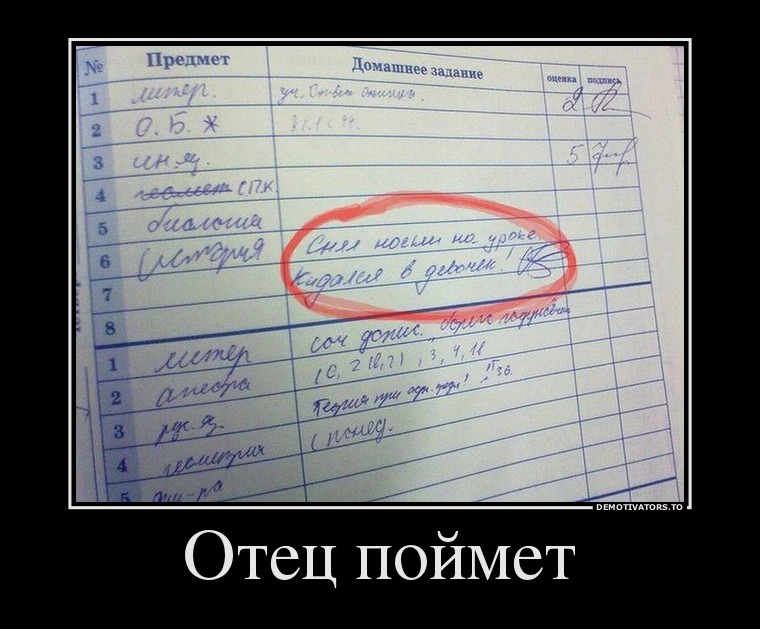 № Предмет Домашнее задание оценка подпись
1 литер. уч. 2
2 О.Б.Ж
3 ин.яз. 5
4 геомет СПК.
5 биология
6 история Снял носки на уроке.
7 Кидался в девочек!
8
1 литер соч допис.
2 алгебра
3 рус. яз. Теория при
4 геометрия
5 физ-ра
DEMOTIVATORS.TO
Отец поймет